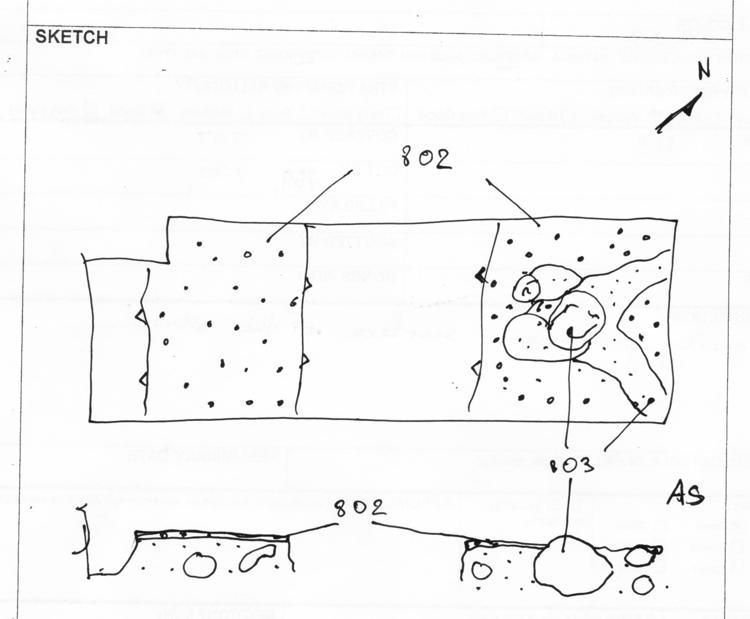 SKETCH
N
802
803
AS
802